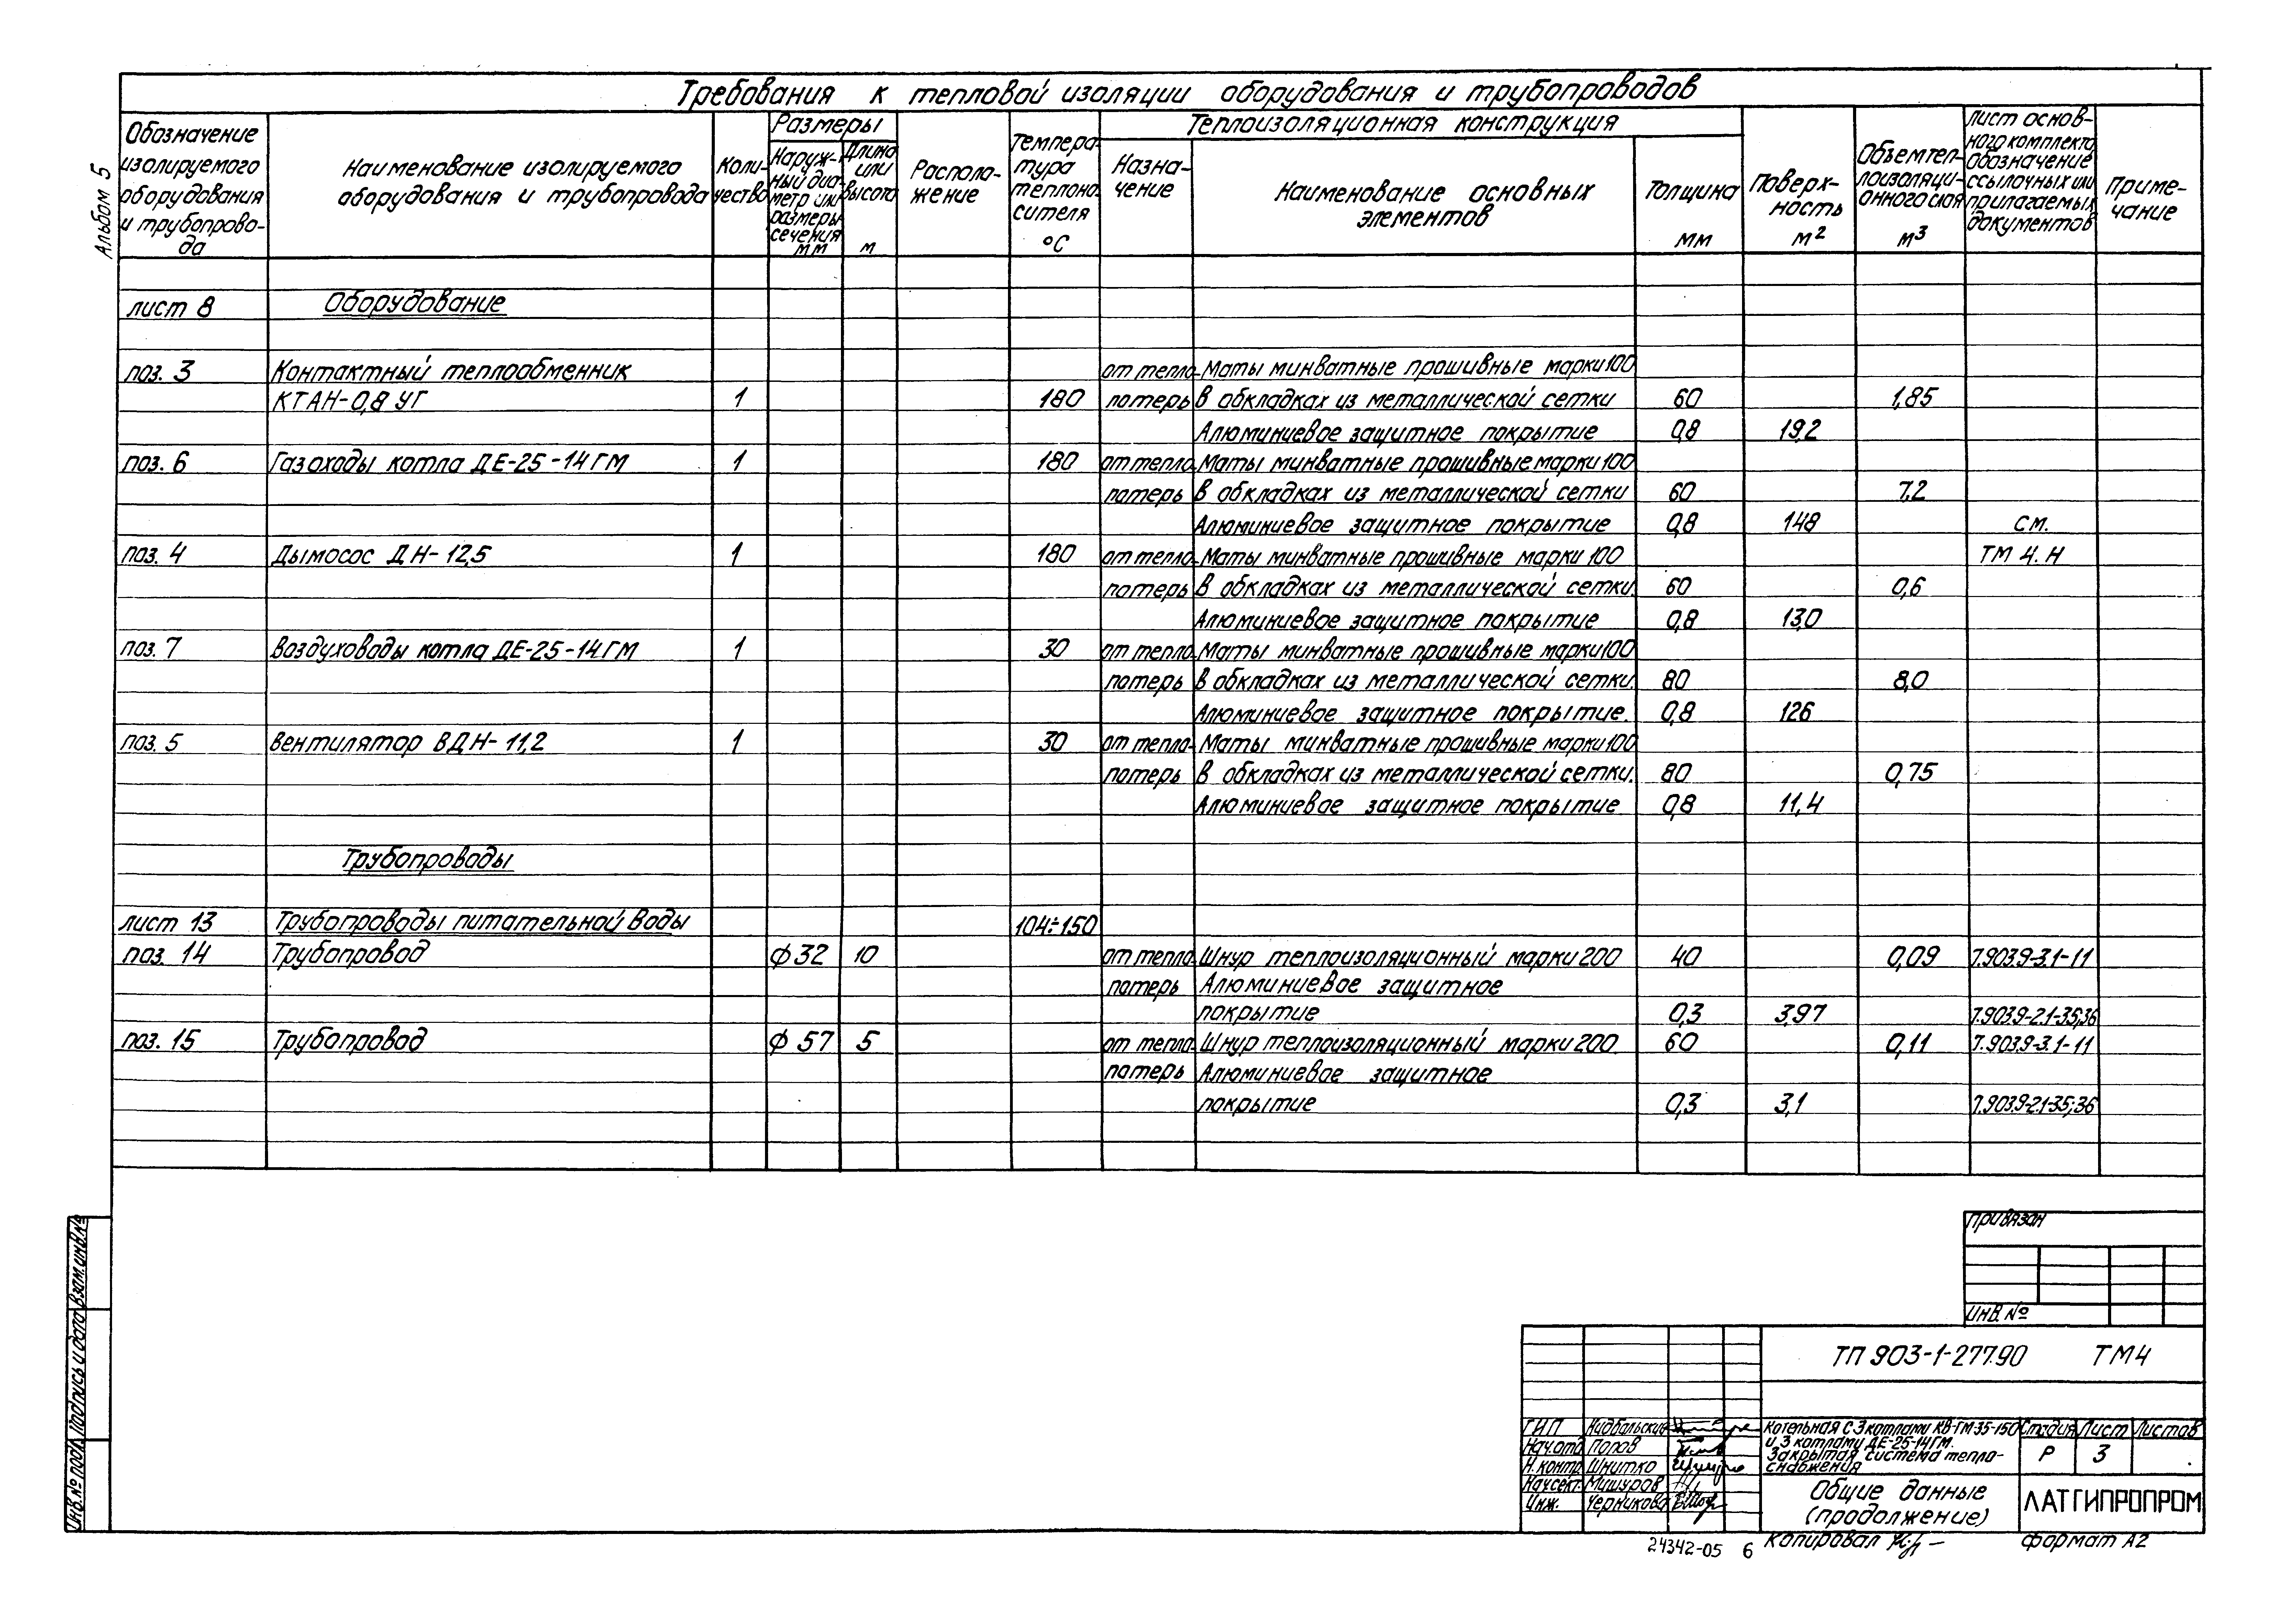 Альбом 5
Требования к тепловой изоляции оборудования и трубопроводов
Обозначение изолируемого оборудования и трубопрово-да
Наименование изолируемого оборудования и трубопровода
Коли-чество
Размеры
Наруж-ный диа-метр или размеры сечения мм
Длина или высота м
Располо-жение
Темпера-тура теплоно-сителя °С
Теплоизоляционная конструкция
Назна-чение
Наименование основных элементов
Толщина мм
Поверх-ность м²
Объем теп-лоизоляци-онного слоя м³
Лист основ-ного комплекта обозначение ссылочных или прилагаемых документов
Приме-чание
лист 8 Оборудование
поз. 3 Контактный теплообменник от тепло- Маты минватные прошивные марки 100
КТАН-0,8 УГ 1 180 потерь в обкладках из металлической сетки 60 1,85
Алюминиевое защитное покрытие 0,8 19,2
поз. 6 Газоходы котла ДЕ-25-14ГМ 1 180 от тепло- Маты минватные прошивные марки 100
потерь в обкладках из металлической сетки 60 7,2
Алюминиевое защитное покрытие 0,8 148 см.
поз. 4 Дымосос ДН-12,5 1 180 от тепло- Маты минватные прошивные марки 100 ТМ 4. Н
потерь в обкладках из металлической сетки. 60 0,6
Алюминиевое защитное покрытие 0,8 13,0
поз. 7 Воздуховоды котла ДЕ-25-14ГМ 1 30 от тепло- Маты минватные прошивные марки 100
потерь в обкладках из металлической сетки. 80 8,0
Алюминиевое защитное покрытие. 0,8 126
поз. 5 Вентилятор ВДН-11,2 1 30 от тепло- Маты минватные прошивные марки 100
потерь в обкладках из металлической сетки. 80 0,75
Алюминиевое защитное покрытие 0,8 11,4
Трубопроводы
лист 13 Трубопроводы питательной воды 104÷150
поз. 14 Трубопровод ф 32 10 от тепло- Шнур теплоизоляционный марки 200 40 0,09 7.903.9-3.1-11
потерь Алюминиевое защитное
покрытие 0,3 3,97 7.903.9-2.1-35;36
поз. 15 Трубопровод ф 57 5 от тепло- Шнур теплоизоляционный марки 200. 60 0,11 7.903.9-3.1-11
потерь Алюминиевое защитное
покрытие 0,3 3,1 7.903.9-2.1-35;36
Привязан
Инв. №
ТП 903-1-277.90 ТМ4
ГИП
Нач.отд. Попов
Н. контр. Шнитко
Нач.сект. Мишуров
Инж. Черникова
Котельная с 3 котлами КВ-ГМ-35-150
и 3 котлами ДЕ-25-14ГМ.
Закрытая система тепло-
снабжения
Стадия Лист Листов
Р 3
Общие данные
(продолжение)
ЛАТГИПРОПРОМ
24342-05 6
Копировал
формат А2
Взам. инв. №
Подпись и дата
Инв. № подл.